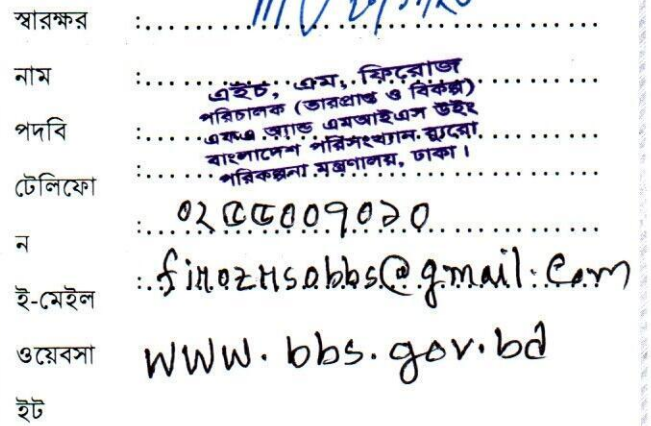 স্বারক্ষর :
নাম : এইচ, এম, ফিরোজ
পরিচালক (ভারপ্রাপ্ত ও বিকল্প)
পদবি : এফএ অ্যান্ড এমআইএস উইং
বাংলাদেশ পরিসংখ্যান ব্যুরো
: পরিকল্পনা মন্ত্রণালয়, ঢাকা।
টেলিফো
ন : ০২৫৫০০৭০১০
ই-মেইল : firozrsobbs@gmail.com
ওয়েবসা www.bbs.gov.bd
ইট